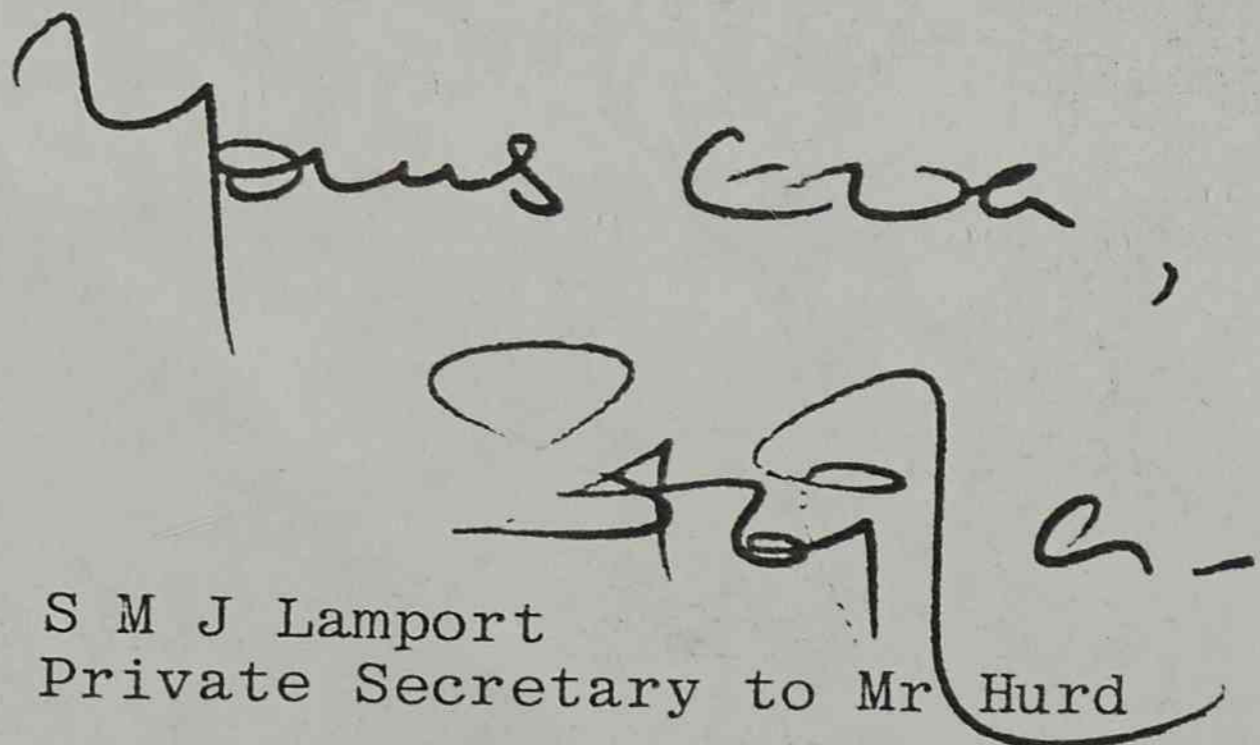 Yours ever,
S M J Lamport
Private Secretary to Mr Hurd